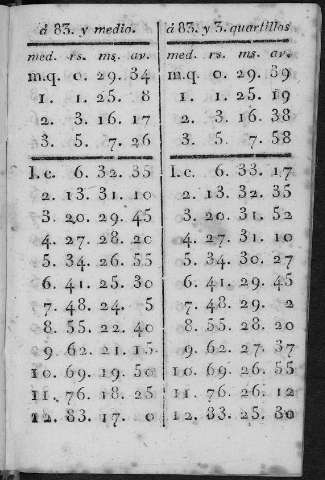 á 83. y medio.
med. rs. ms. av.
m.q. 0. 29. 34
1. 1. 25. 8
2. 3. 16. 17
3. 5. 7. 26
1.c. 6. 32. 35
2. 13. 31. 10
3. 20. 29. 45
4. 27. 28. 20
5. 34. 26. 55
6. 41. 25. 30
7. 48. 24. 5
8. 55. 22. 40
9. 62. 21. 15
10. 69. 19. 50
11. 76. 18. 25
12. 83. 17. 0
á 83. y 3. quartillos
med. rs. ms. av.
m.q. 0. 29. 39
1. 1. 25. 19
2. 3. 16. 38
3. 5. 7. 58
1.c. 6. 33. 17
2. 13. 32. 35
3. 20. 31. 52
4. 27. 31. 10
5. 34. 30. 27
6. 41. 29. 45
7. 48. 29. 2
8. 55. 28. 20
9. 62. 27. 37
10. 69. 26. 55
11. 76. 26. 12
12. 83. 25. 30